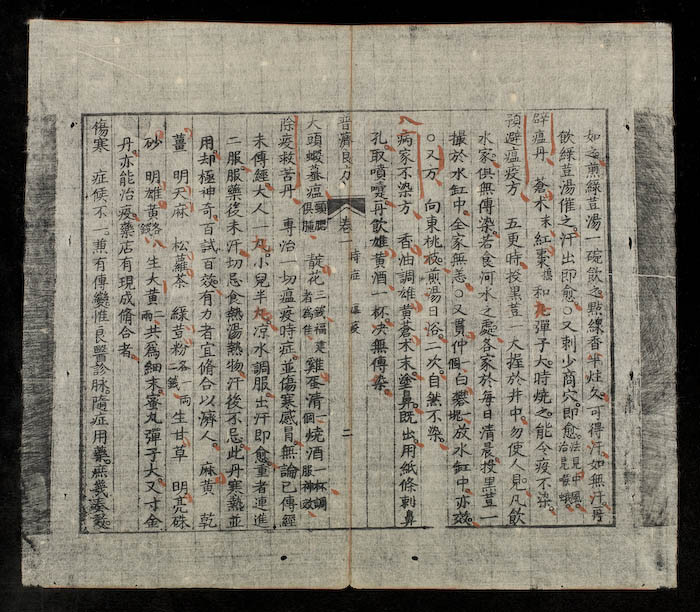 如忌煎綠荳湯一碗飲之點線香半炷久可得汗如無汗再
飲綠荳湯催之汗出即愈○又刺少商穴即愈法見中風治見喉蛾
辟瘟丹 蒼术末紅棗搗和丸彈子大時燒之能令疫不染
預避瘟疫方 五更時投黑荳一大握於井中勿使人見凡飲
水家俱無傳染若食河水之處各家於每日清晨投黑荳一
撮於水缸中全家無恙○又貫仲一個白礬一塊放水缸中亦效
○又方 向東桃枝煎湯日浴二次自然不染
入病家不染方 香油調雄黃蒼术末塗鼻既出用紙條刺鼻
孔取噴嚏再飲雄黃酒一杯决無傳染
普濟良方 卷一 時症 瘟疫 二
大頭蝦蟇瘟頭腮俱腫 靛花三錢福建者為佳 雞蛋清一個燒酒一杯調服神效
除疫救苦丹 專治一切瘟疫時症並傷寒感冒無論已傳經
未傳經大人一丸小兒半丸凉水調服出汗即愈重者連進
二服服藥後未汗切忌食熱湯熱物汗後不忌此丹寒熱並
用却極神奇百試百效有力者宜脩合以濟人 麻黃 乾
薑 明天麻 松蘿茶 綠荳粉各一兩二錢 生甘草 明亮硃
砂 明雄黃各八錢 生大黃二兩共為細末蜜丸彈子大又寸金
丹亦能治疫藥店有現成脩合者
傷寒 症候不一兼有傳變惟良醫診脉隨症用藥庶幾奏效